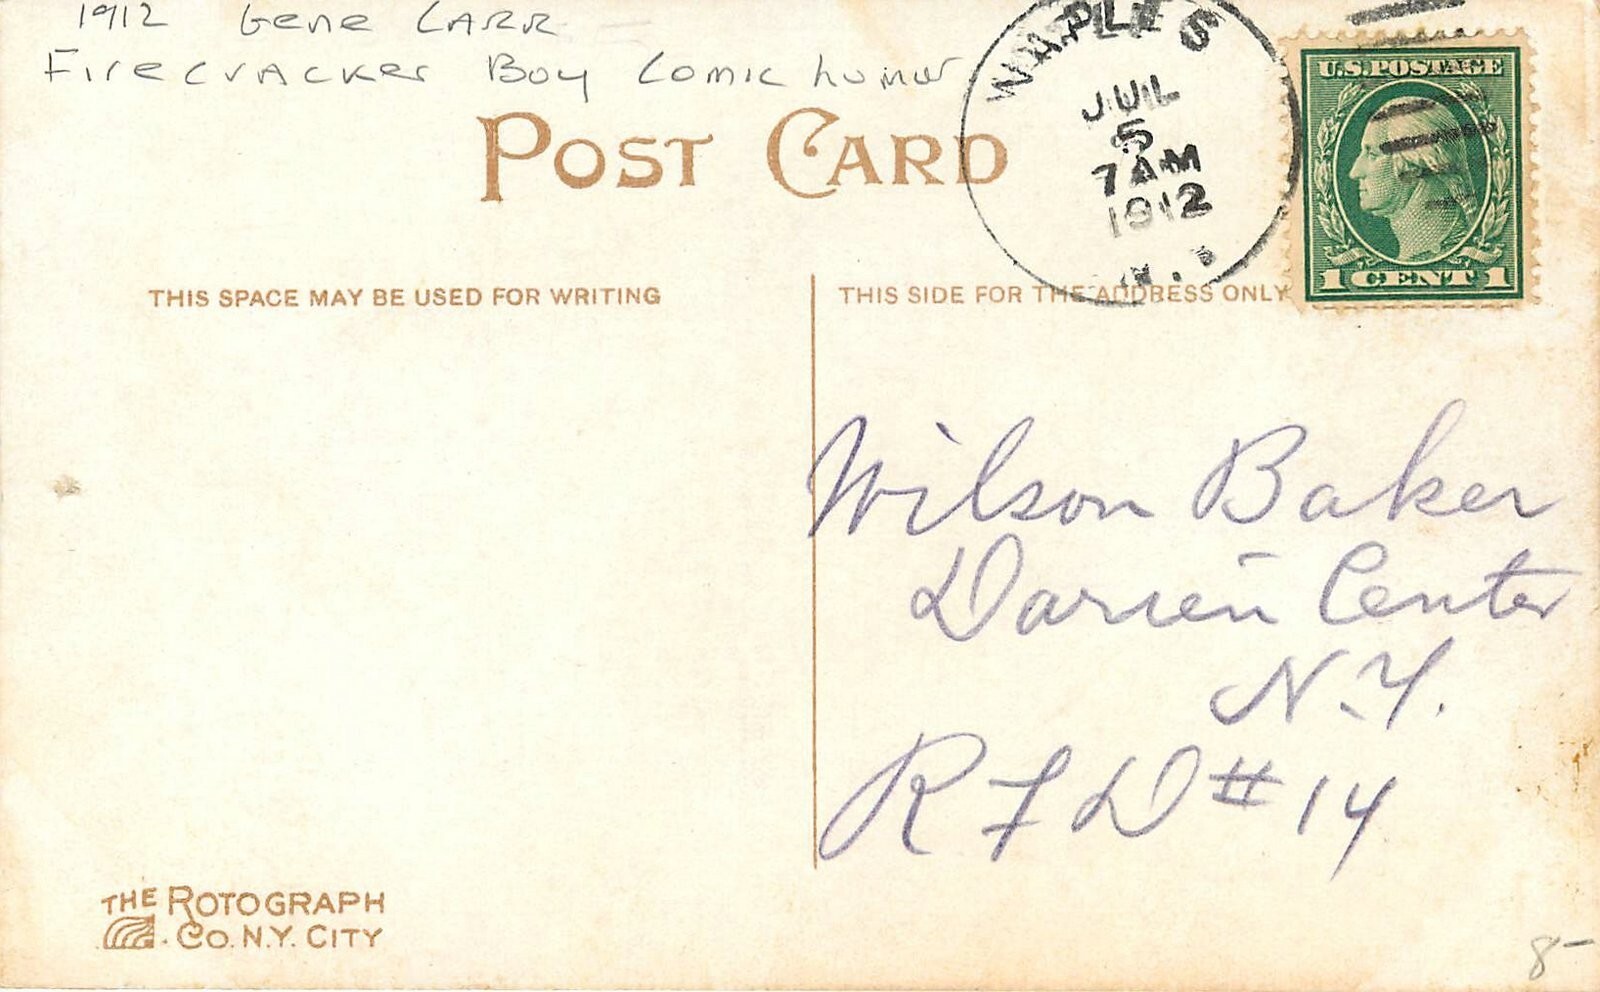 1912 Gene CARR
Firecracker Boy Comic humor
POST CARD
JUL
5
7 AM
1912
U.S. POSTAGE
1 CENT 1
THIS SPACE MAY BE USED FOR WRITING
THIS SIDE FOR THE ADDRESS ONLY
Wilson Baker
Darien Center
N.Y.
R F D # 14
THE ROTOGRAPH
CO. N.Y. CITY
8-